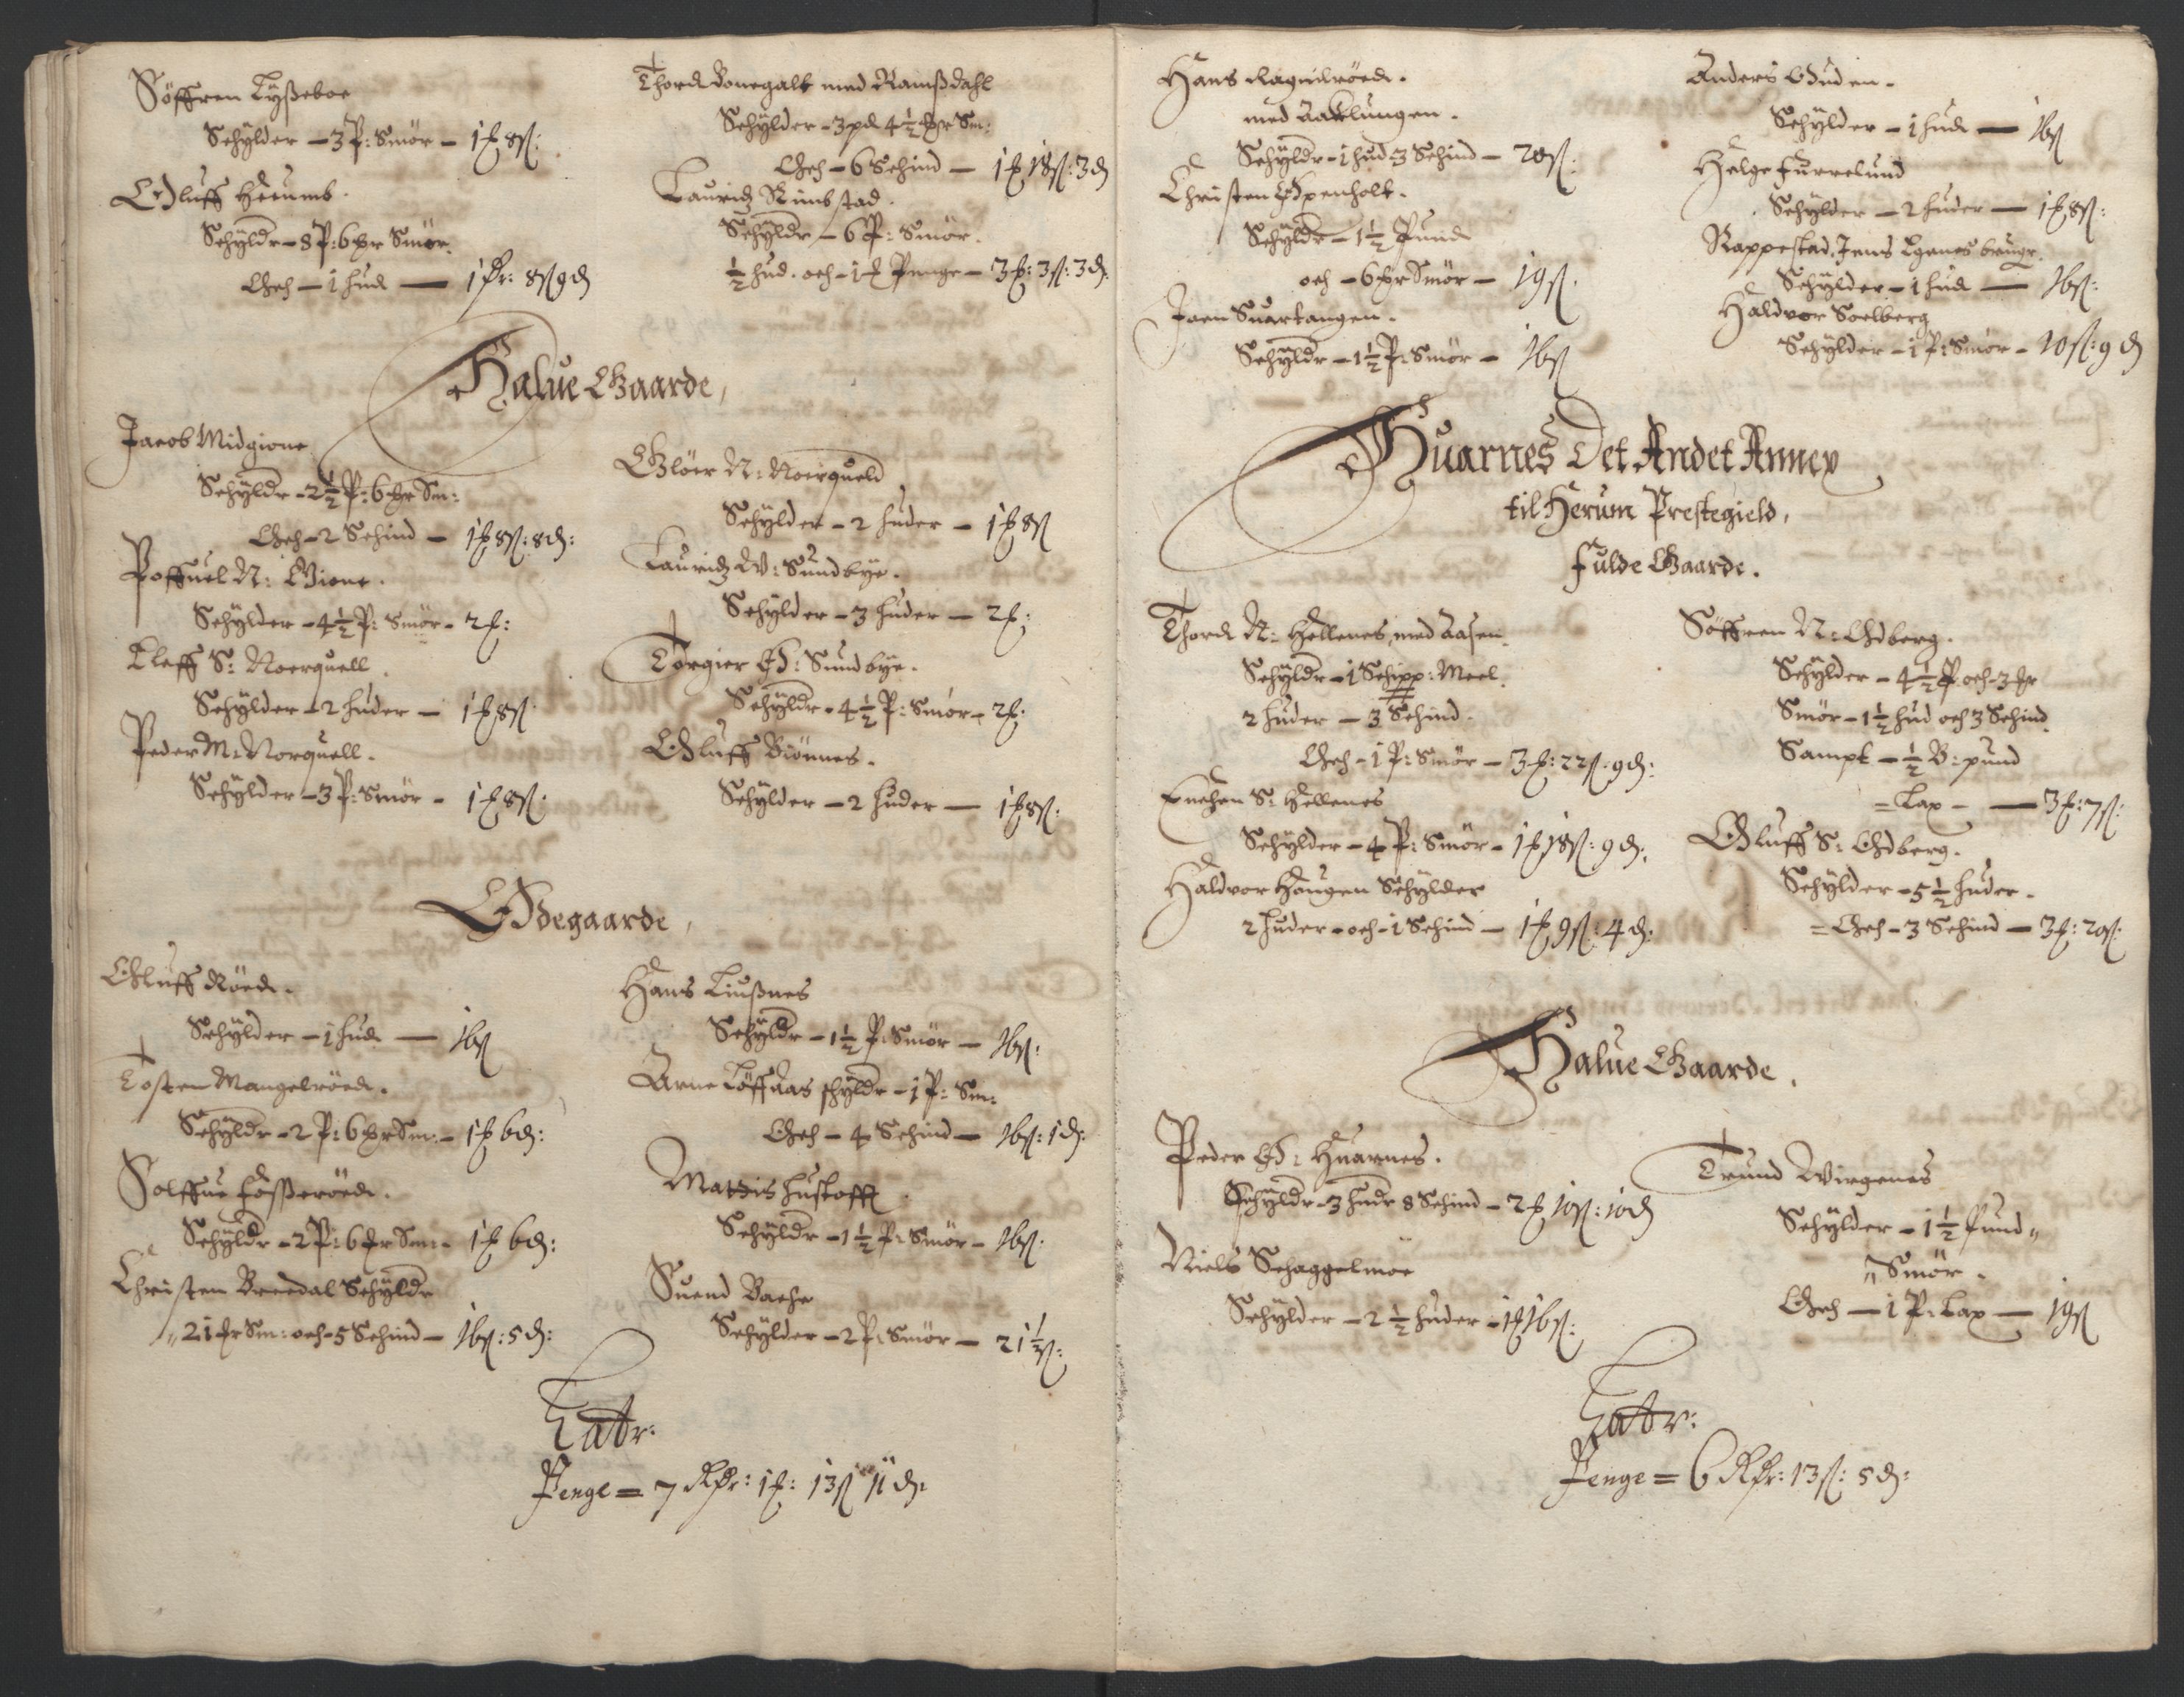 Söffren Lÿßeboe
Schÿlder – 3 P: Smör – 1 ƒ 8 ß:
Oluff Heeumb.
Schÿldr – 8 P: 6 mr Smør.
Och – 1 hud — 1 Rr: 8 ß 9 d
Thord Bonegalt med Ramßdahl
Schÿlder – 3 pd 4½ mr Sm:
Och – 6 Schind — 1 ƒ 18 ß: 3 d
Lauridz Rimbstad.
Schÿldr – 6 P: Smör.
½ hud. och – 1 ƒ Penge – 3 ƒ: 3 ß: 3 d.
Halue Gaarde,
Jacob Midgione
Schÿldr – 2½ P: 6 mr Sm:
Och – 2 Schind – 1 ƒ 8 ß: 8 d:
Poffuel N: Gione.
Schÿlder – 4½ P: Smör – 2 ƒ:
Eleff S: Noerquell.
Schÿlder – 2 huder – 1 ƒ 8 ß:
Peder M: Norquell.
Schÿlder – 3 P: Smör – 1 ƒ 8 ß:
Glöer N: Noerqueld
Schÿlder – 2 huder – 1 ƒ 8 ß
Lauridz W: Sundbÿe.
Schÿlder – 3 huder – 2 ƒ:
Torgier Ø: Sundbÿe.
Schÿldr – 4½ P: Smör – 2 ƒ:
Oluff Biönnes.
Schÿlder – 2 huder — 1 ƒ 8 ß:
Ødegaarde,
Oluff Röed.
Schÿlder – 1 hud — 16 ß
Tosten Mangelröed.
Schÿldr – 2 P: 6 mr Sm: – 1 ƒ 6 d:
Solffue Foßeröed.
Schÿldr – 2 P: 6 mr Sm: – 1 ƒ 6 d:
Christen Breedal Schÿldr
„ 21 mr Sm: och – 5 Schind – 16 ß: 5 d:
Hans Liußnes
Schÿldr – 1½ P: Smör – 16 ß:
Arne Löffaas schÿldr – 1 P: Sm:
Och – 4 Schind – 16 ß: 1 d:
Mathis Hustofft.
Schÿldr – 1½ P: Smör – 16 ß.
Suend Bache
Schÿlder – 2 P: Smör – 21½ ß:
Latr:
Penge = 7 Rdr: 1 ƒ: 13 ß 11 d:
Hans Ragnilröed.
med Aaklungen.
Schÿldr – 1 hud 3 Schind – 20 ß:
Christen Espenholt.
Schÿldr – 1½ Pund
och – 6 mr Smör – 19 ß.
Joen Suartangen.
Schÿldr – 1½ P: Smör – 16 ß
Anders Guden.
Schÿlder – 1 hud — 16 ß
Helge Furrelund
Schÿlder – 2 huder — 1 ƒ 8 ß:
Rappestad, Jens brugr.
Schÿlder – 1 hud — 16 ß:
Haldvor Soelberg
Schÿlder – 1 P: Smör – 10 ß: 9 d
Huarnes Det Andet Annex
til Herum Prestegield,
Fulde Gaarde.
Thord N: Hellenes, med Aasen.
Schÿldr – 1 Schipp: Meel.
2 huder – 3 Schind.
Och – 1 P: Smör – 3 ƒ: 22 ß: 9 d:
Enchen S: Hellenes
Schÿlder – 4 P: Smör – 1 ƒ 18 ß: 9 d:
Haldvor Haugen Schÿlder
2 huder – och – 1 Schind – 1 ƒ 9 ß: 4 d:
Söffren N: Odberg.
Schÿlder – 4½ P och – 3 mr
Smör – 1½ hud och 3 Schind
Sampt – ½ B: pund
= Lax – — 3 ƒ: 7 ß:
Oluff S: Odberg.
Schÿlder – 5½ huder.
= Och – 3 Schind — 3 ƒ: 20 ß:
Halue Gaarde.
Peder Ø: Huarnes.
Schÿldr – 3 hudr 8 Schind – 2 ƒ 10 ß: 10 d
Niels Schaggelmoe
Schÿlder – 2½ huder – 1 ƒ 16 ß:
Trund Wirgenes
Schÿlder – 1½ Pund „
„ Smör.
Och — 1 P: Lax — 19 ß
Latr:
Penge = 6 Rdr: 13 ß: 5 d: